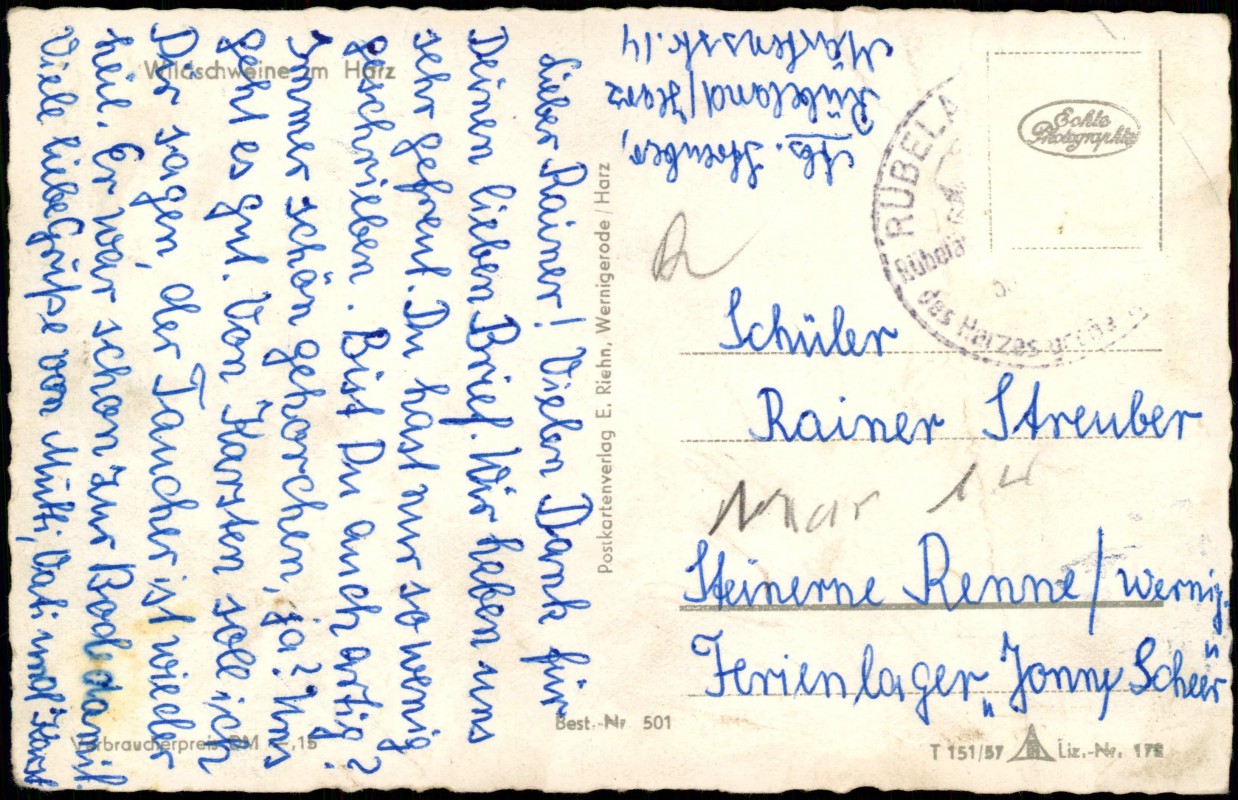 Wildschweine im Harz
Lieber Rainer! Vielen Dank für
Deinen lieben Brief. Wir haben uns
sehr gefreut. Du hast nur so wenig
geschrieben. Bist Du auch artig?
Immer schön gehorchen, ja? Uns
geht es gut. Von Karsten soll ich
Dir sagen, der Taucher ist wieder
heil. Er war schon zur Bode damit.
Viele liebe Grüße von Mutti, Vati und Karst
Verbraucherpreis DM -,15
Best.-Nr. 501
Postkartenverlag E. Riehn, Wernigerode/Harz
Abs. Streuber,
Rübeland/Harz
14
RÜBELA
Rübela
des Harzes
Echte
Photographie
Schüler
Rainer Streuber
Mar 14
Steinerne Renne/Wernig.
Ferienlager „Jonny Scheer"
T 151/57 Liz.-Nr. 178